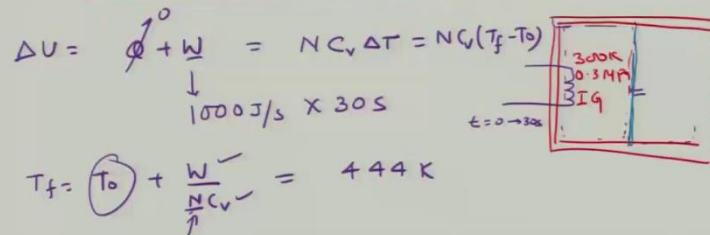 ΔU = Q̸⁰ + W = N Cᵥ ΔT = N Cᵥ (T_f - T₀)
↓
1000 J/s × 30 s
300K
0.3 MPa
IG
t = 0 → 30s
T_f = T₀ + W / N Cᵥ = 444 K